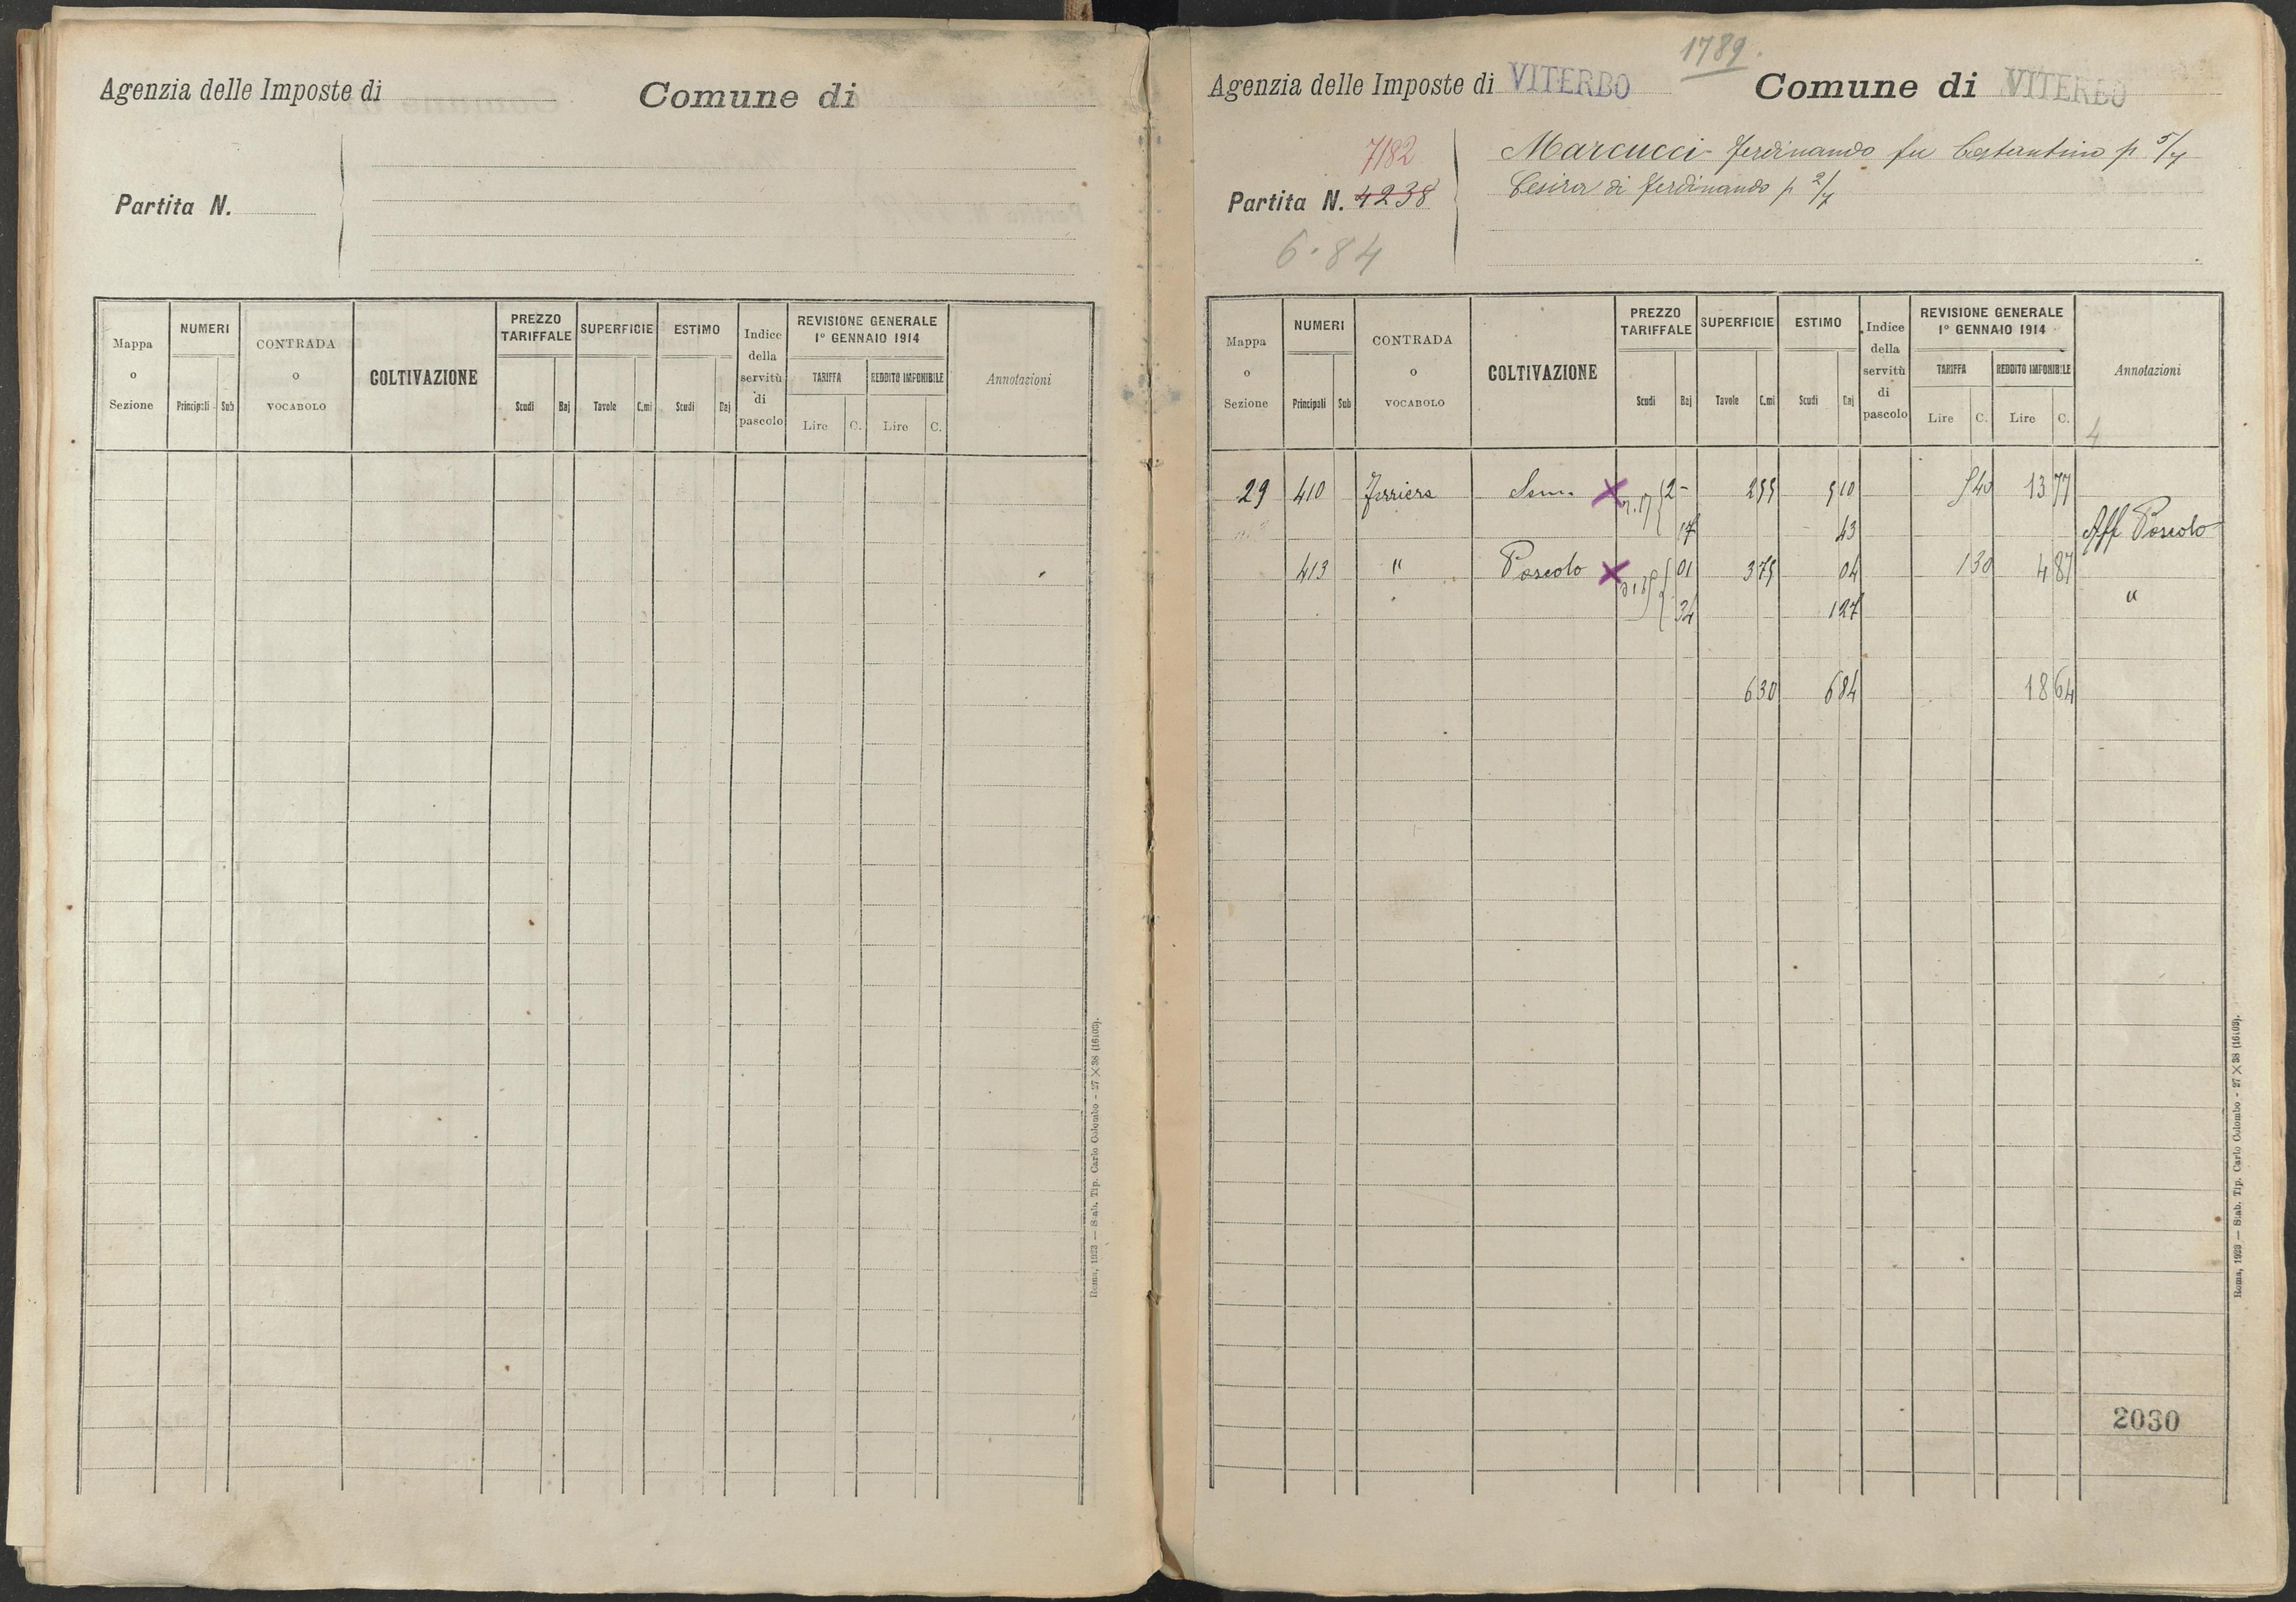 Agenzia delle Imposte di
Comune di
Partita N.
Mappa o Sezione
NUMERI
Principali
Sub
CONTRADA o VOCABOLO
COLTIVAZIONE
PREZZO TARIFFALE
Scudi
Baj
SUPERFICIE
Tavole
C.mi
ESTIMO
Scudi
Baj
Indice della servitù di pascolo
REVISIONE GENERALE
1° GENNAIO 1914
TARIFFA
REDDITO IMPONIBILE
Lire
C.
Lire
C.
Annotazioni
Roma, 1923 — Stab. Tip. Carlo Colombo - 27 × 38 (16103).
1789.
Agenzia delle Imposte di VITERBO
Comune di VITERBO
7182
Partita N. 4238
6.84
Marcucci Ferdinando fu Costantino p 5/7
Cesira di Ferdinando p 2/7
Mappa o Sezione
NUMERI
Principali
Sub
CONTRADA o VOCABOLO
COLTIVAZIONE
PREZZO TARIFFALE
Scudi
Baj
SUPERFICIE
Tavole
C.mi
ESTIMO
Scudi
Baj
Indice della servitù di pascolo
REVISIONE GENERALE
1° GENNAIO 1914
TARIFFA
REDDITO IMPONIBILE
Lire
C.
Lire
C.
Annotazioni
4
29 410 Ferriera Sem. X 2 - 255 5 10 5 40 13 77
17 43 Aff Pascolo
413 " Pascolo X 01 375 04 1 30 4 87
34 1 27 "
6 30 6 84 18 64
2030
Roma, 1923 — Stab. Tip. Carlo Colombo - 27 × 38 (16103).